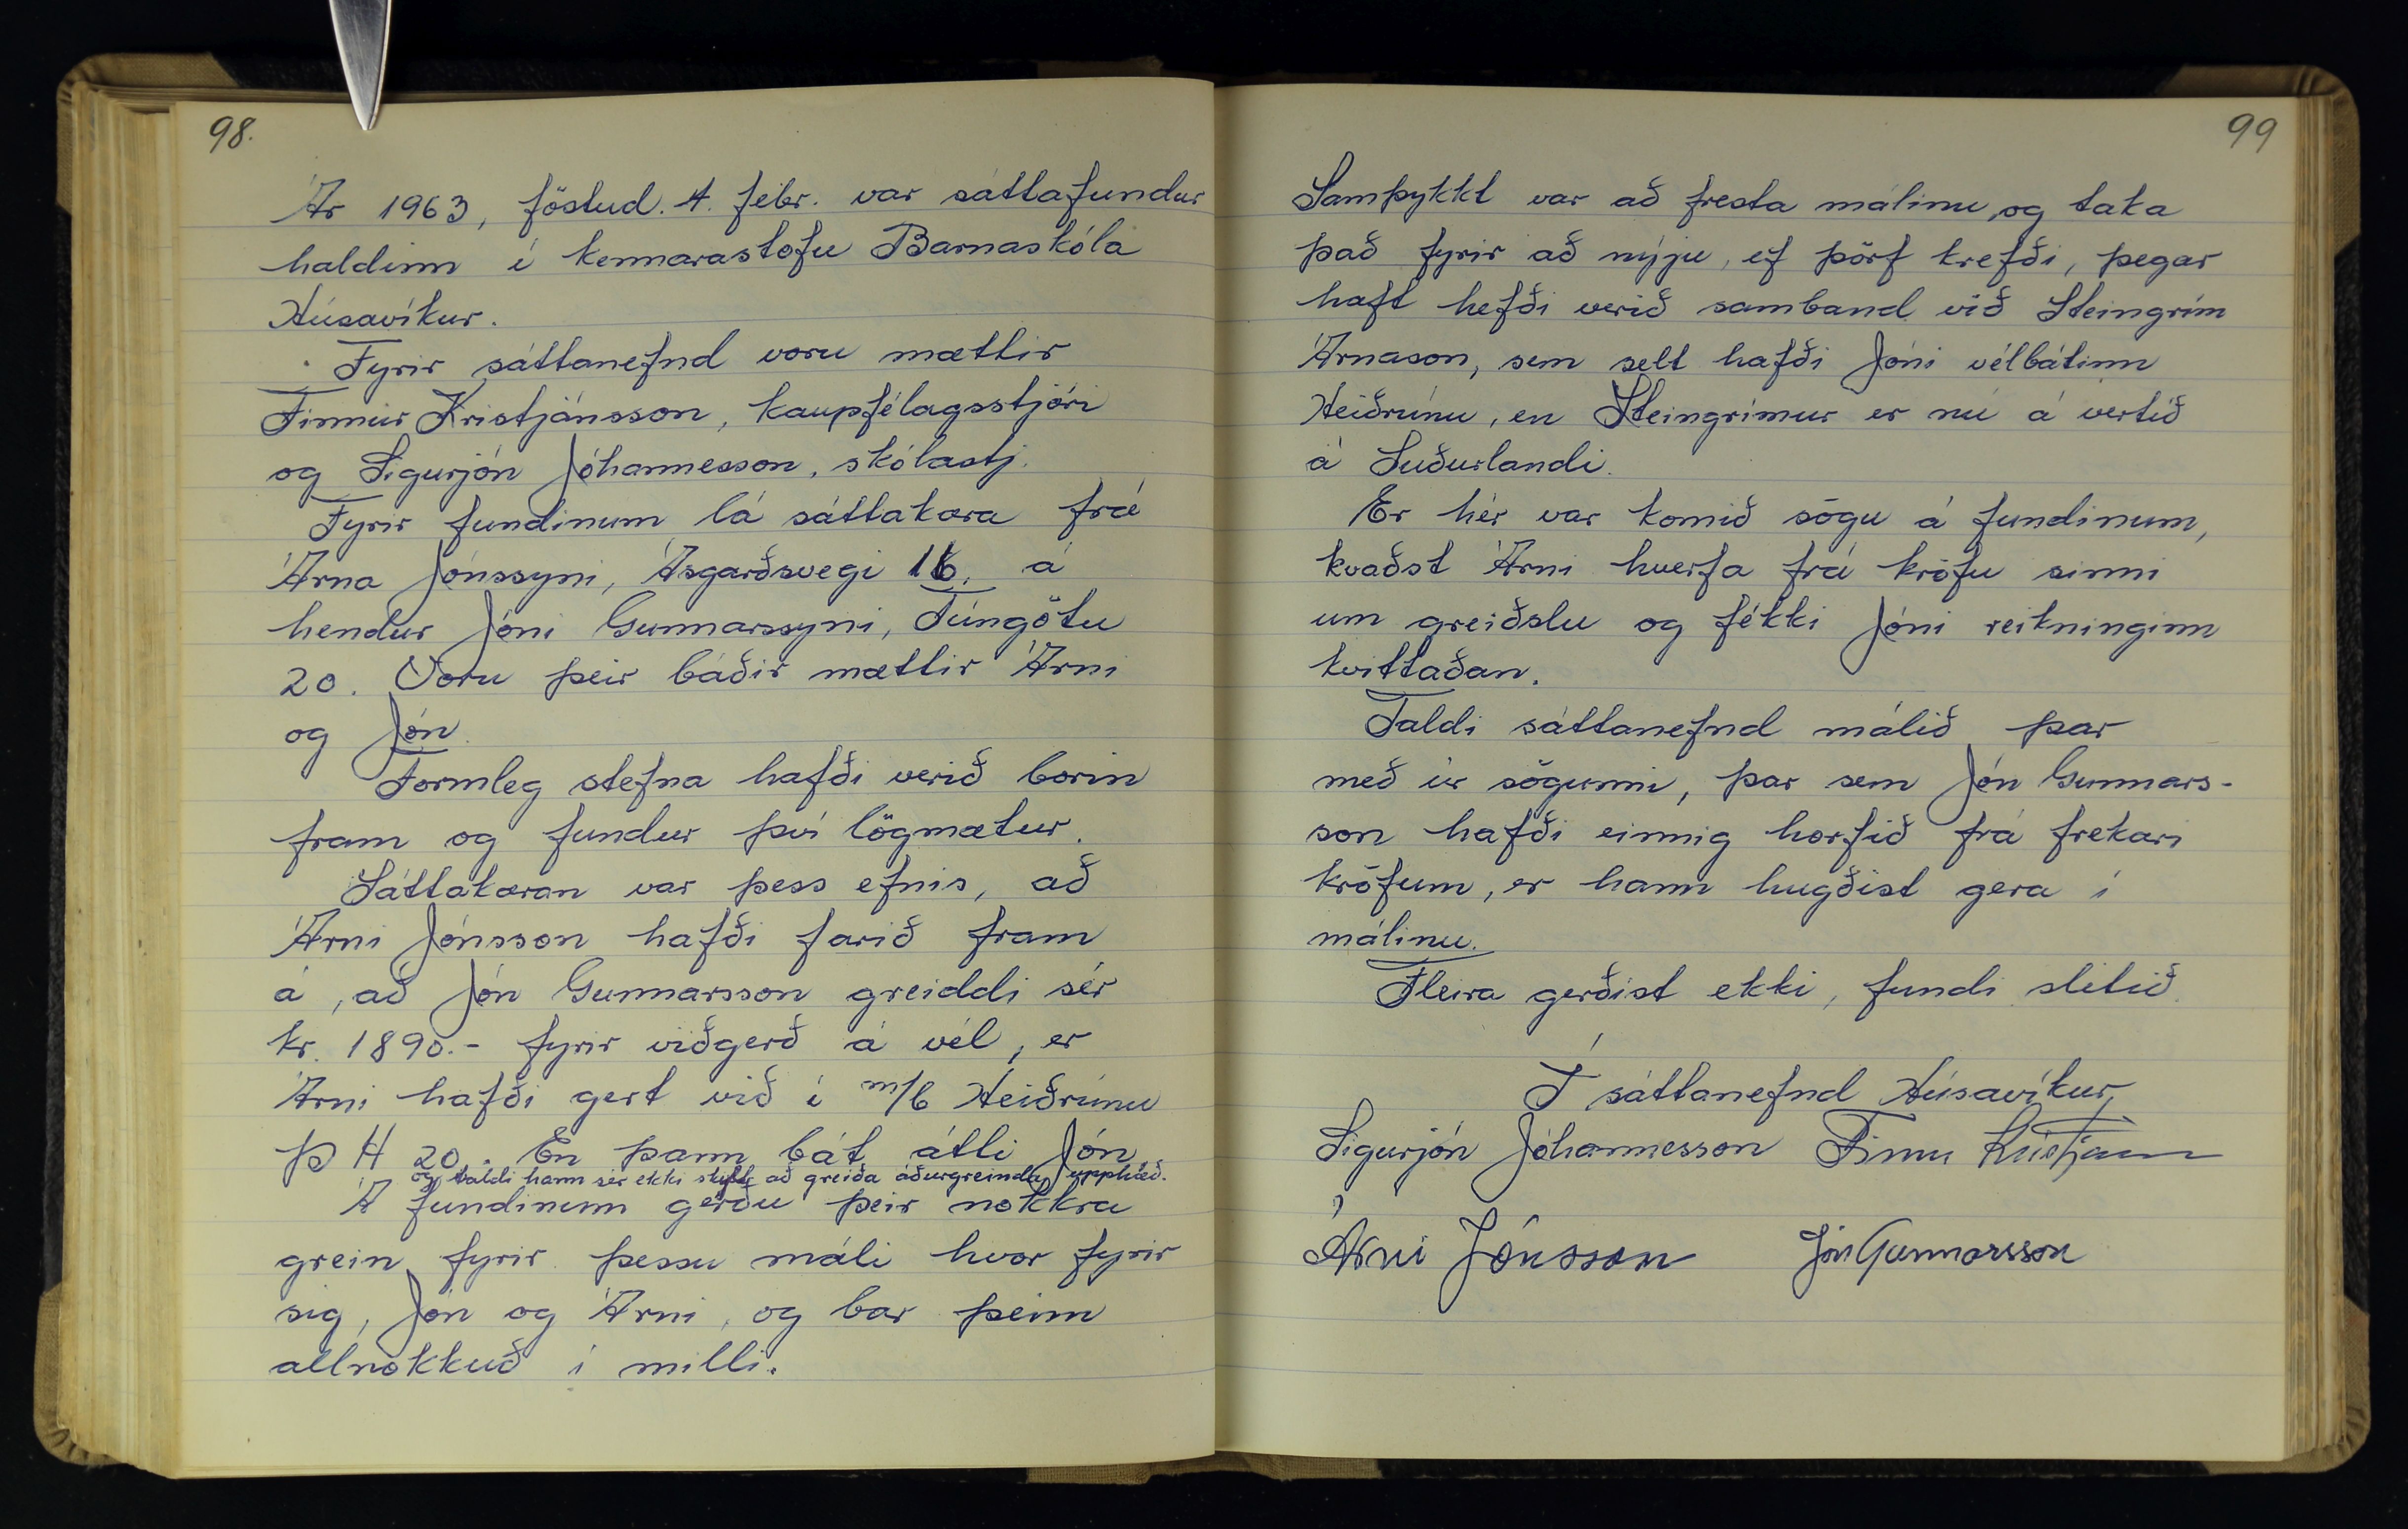 98.
Ár 1963, föstud. 4. febr. var sáttafundur
haldinn í kennarastofu Barnaskóla
Húsavíkur.
Fyrir sáttanefnd voru mættir
Finnur Kristjánsson, kaupfélagsstjóri
og Sigurjón Jóhannesson, skólastj.
Fyrir fundinum lá sáttakæra frá
Árna Jónssyni, Ásgarðsvegi 16, á
hendur Jóni Gunnarssyni, Túngötu
20. Voru þeir báðir mættir Árni
og Jón.
Formleg stefna hafði verið borin
fram og fundur því lögmætur.
Sáttakæran var þess efnis, að
Árni Jónsson hafði farið fram
á, að Jón Gunnarsson greiddi sér
kr. 1890.- fyrir viðgerð á vél, er
Árni hafði gert við í m/b Heiðrúnu
Þ H 20. En þann bát átti Jón
og taldi hann sér ekki skylt að greiða áðurgreinda upphæð.
Á fundinum gerðu þeir nokkra
grein fyrir þessu máli hvor fyrir
sig, Jón og Árni, og bar þeim
allnokkuð í milli.
99
Samþykkt var að fresta málinu, og taka
það fyrir að nýju, ef þörf krefði, þegar
haft hefði verið samband við Steingrím
Árnason, sem selt hafði Jóni vélbátinn
Heiðrúnu, en Steingrímur er nú á vertíð
á Suðurlandi.
Er hér var komið sögu á fundinum,
kvaðst Árni hverfa frá kröfu sinni
um greiðslu og fékki Jóni reikninginn
kvittaðan.
Taldi sáttanefnd málið þar
með úr sögunni, þar sem Jón Gunnars-
son hafði einnig horfið frá frekari
kröfum, er hann hugðist gera í
málinu.
Fleira gerðist ekki, fundi slitið.
Í sáttanefnd Húsavíkur,
Sigurjón Jóhannesson Finnur Kristjánsson
Árni Jónsson Jón Gunnarsson